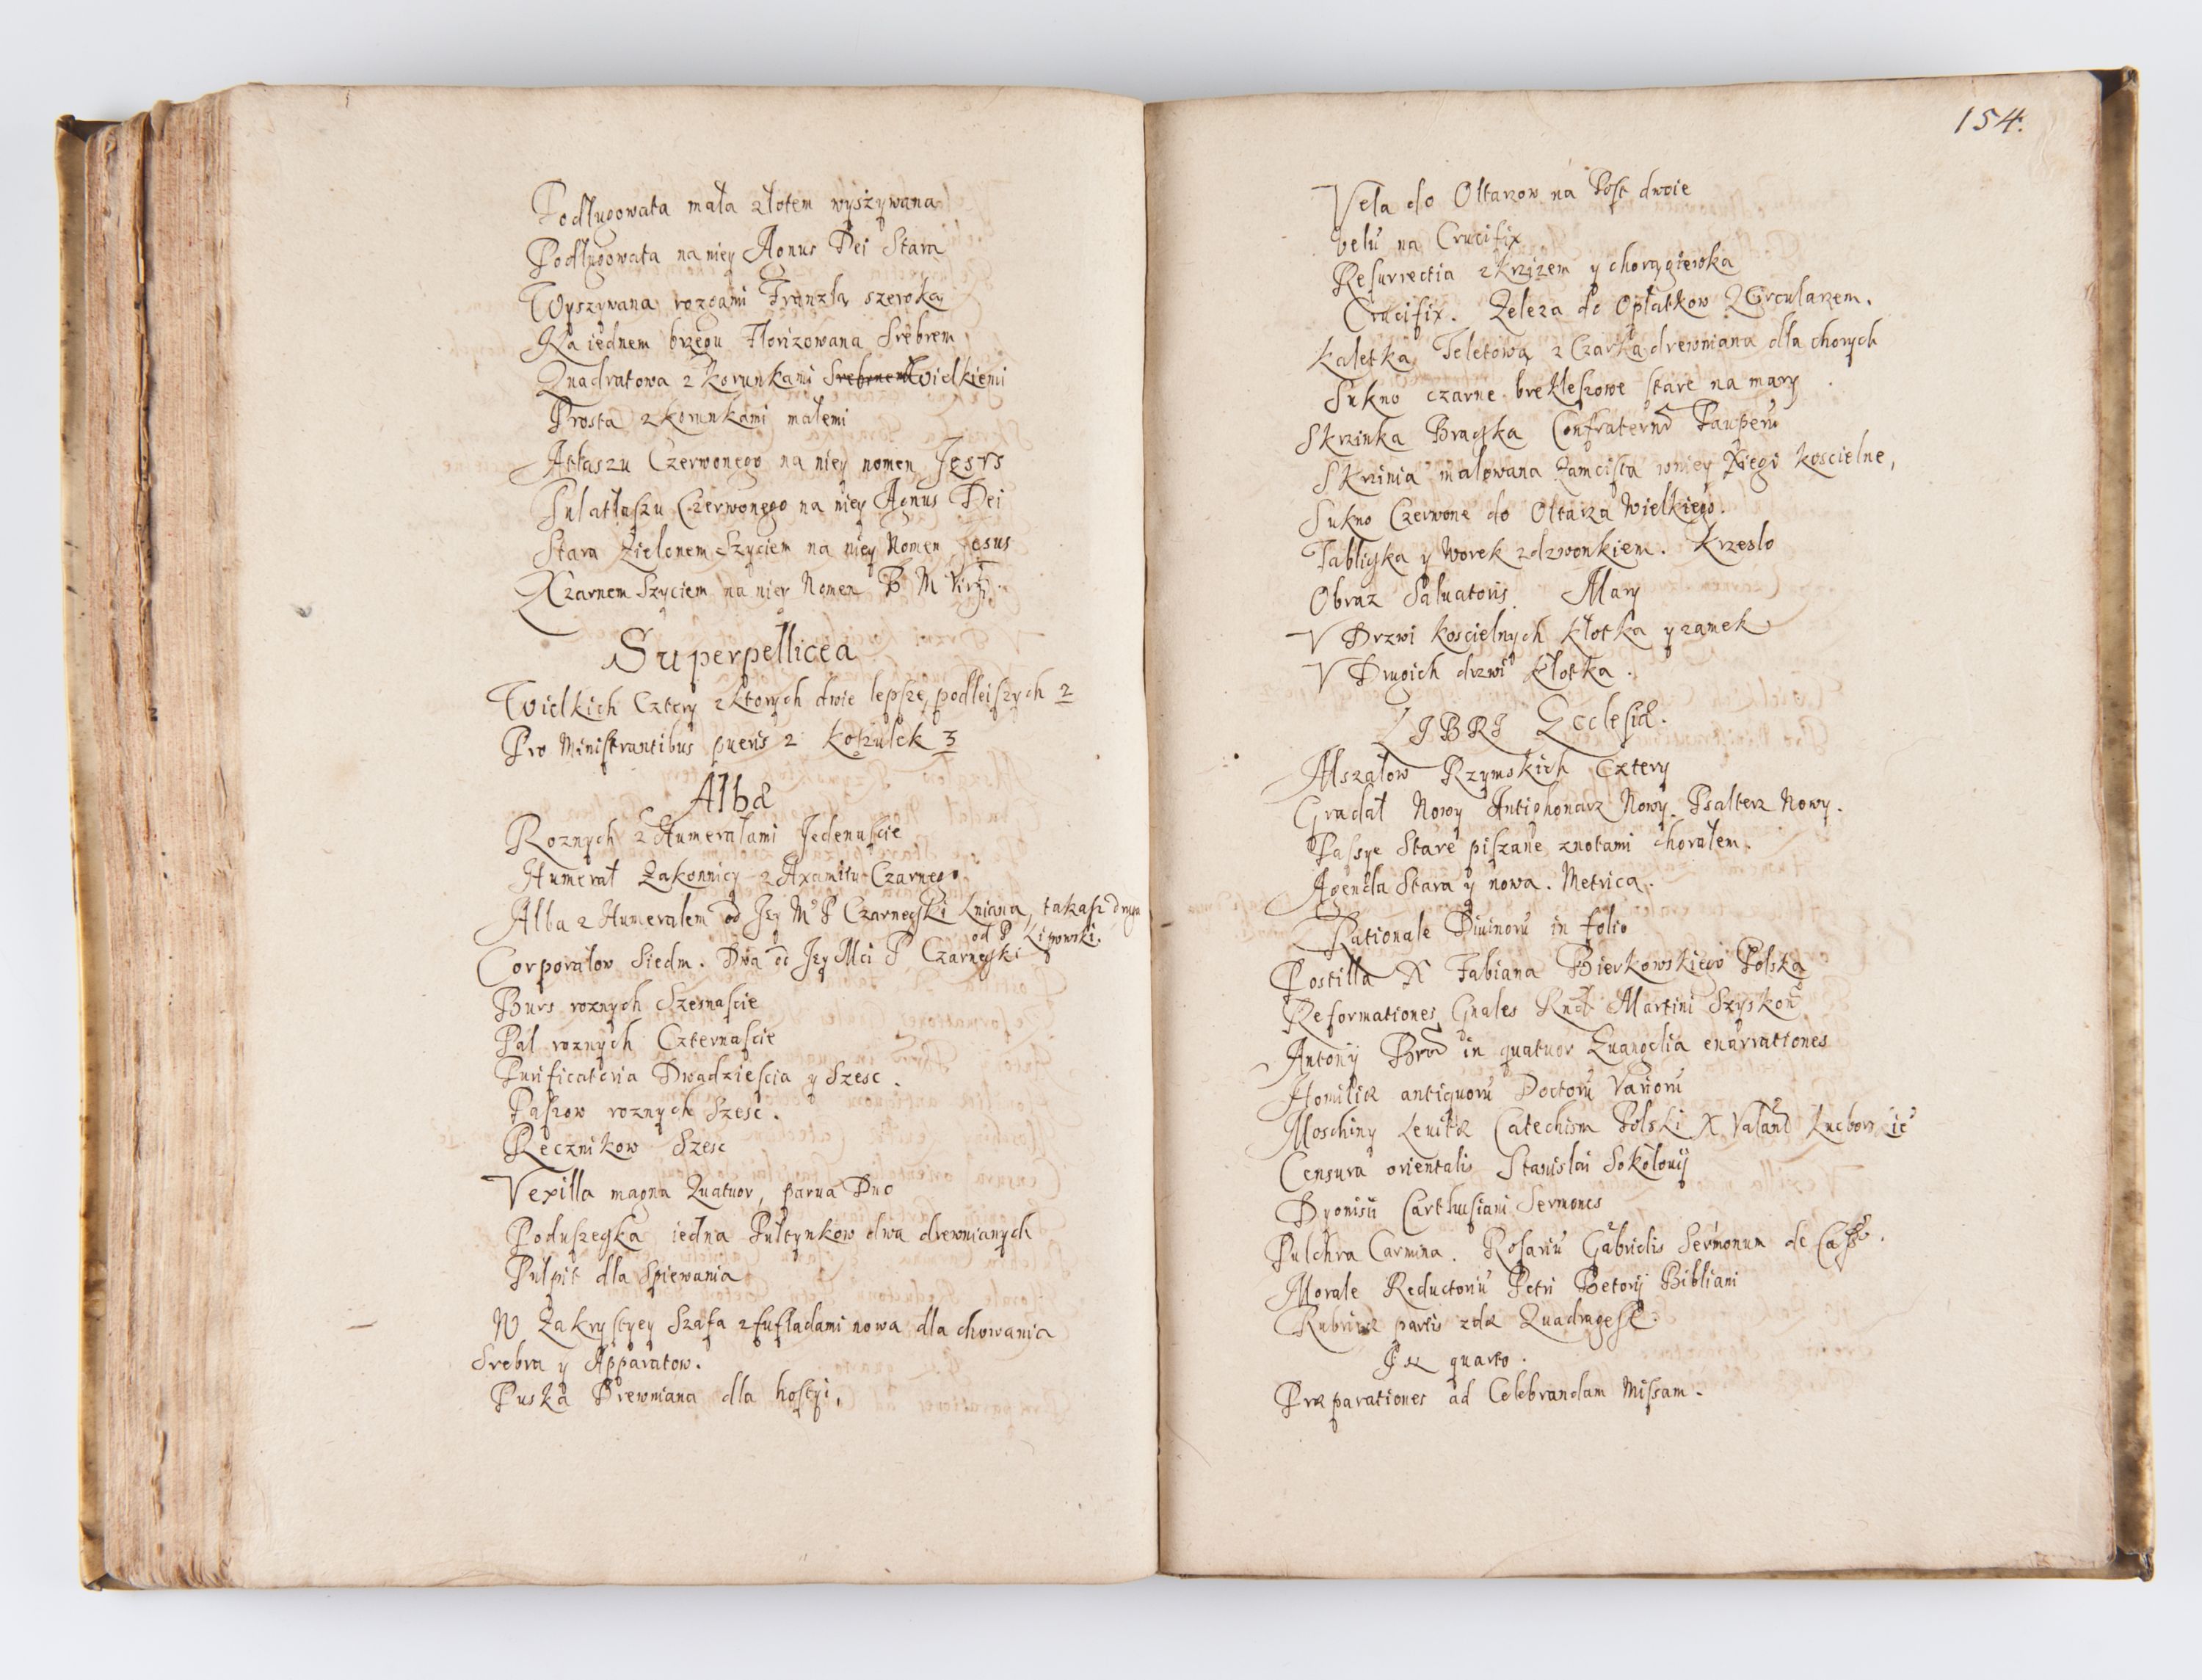 Podługowata mała złotem wyszywana
Podługowata na niey Agnus Dei Stara
Wyszywana rozgami Franzlą szeroką
Na iednem brzegu Florizowana Srebrem
Quadratowa z Korunkami Srebrnemi Wielkiemi
Prosta z korunkami małemi
Atłaszu Czerwonego na niey nomen Jesvs
Pulatłaszu Czerwonego na niey Agnus Dei
Stara Zielonem Szyciem na niey Nomen Jesus
Czarnem Szyciem na niey Nomen B M Virg.
Superpellicea
Wielkich Cztery z ktorych dwie lepsze, podleiszych 2
Pro Ministrantibus pueris 2 Koszulek 3
Albæ
Roznych z Humerałami Jedenaście
Humerał Zakonniczy z Axamitu Czarnego
Alba z Humerałem od Jey M P Czarneyski Lniana, takasz druga
od P Lipowski.
Corporałow Siedm. Dwa od Jey Mci P Czarneyski
Burs roznych Szesnaście
Pal roznych Czternaście
Purificatoria Dwadzieścia y Szesc.
Pasow roznych Szesc.
Ręcznikow Szesc
Vexilla magna Quatuor, parua Duo
Poduszeczka iedna Pultynkow dwa drewnianych
Pulpit dla Spiewania
W Zakrystyey Szafa z szufladami nowa dla chowania
Srebra y Apparatow.
Puska Drewniana dla hostyi,
154.
Vela do Oltarzow na Post dwoie
Velu na Crucifix
Resurrectia z krzizem y chorągiewka
Crucifix. Zeleza do Opłatkow z Circularzem.
Kaletka Teletowa z Czarką drewniana dla chorych
Sukno czarne brekleszowe stare na mary
Skrzinka Bracka Confraternit Pauperu
Skrzinia malowana Zamcista wniey Xiegi koscielne,
Sukno Czerwone do Oltarza Wielkiego.
Tabliczka y Worek z dzwonkiem. Krzeslo
Obraz Saluatoris Mary
V Drzwi koscielnych kłotka y zamek
V Drugich drzwi kłotka.
LIBRI Ecclesiæ.
Mszałow Rzymskich Cztery
Graduał Nowy Antiphonarz Nowy. Psalterz Nowy.
Passye Stare piszane znotami choralem.
Agenda Stara y nowa. Metrica.
Rationale Diuinoru in folio
Postilla X Fabiana Bierkowskiego Polska
Reformationes Gnales Rndi Martini Szyskow
Antonij in quatuor Euangelia enarrationes
Homiliæ antiquoru Doctoru Varioru
Moschiny Leuitæ Catechism Polski X
Censura orientalis Stanislai Sokolouij
Dyonisii Carthusiani Sermones
Pulchra Carmina. Rosariu Gabrielis Sermonum de
Morale Reductoriu Petri Betorij Bibliani
Rubricæ partis 2dæ Quadrages.
In quarto.
Præparationes ad Celebrandam Missam.